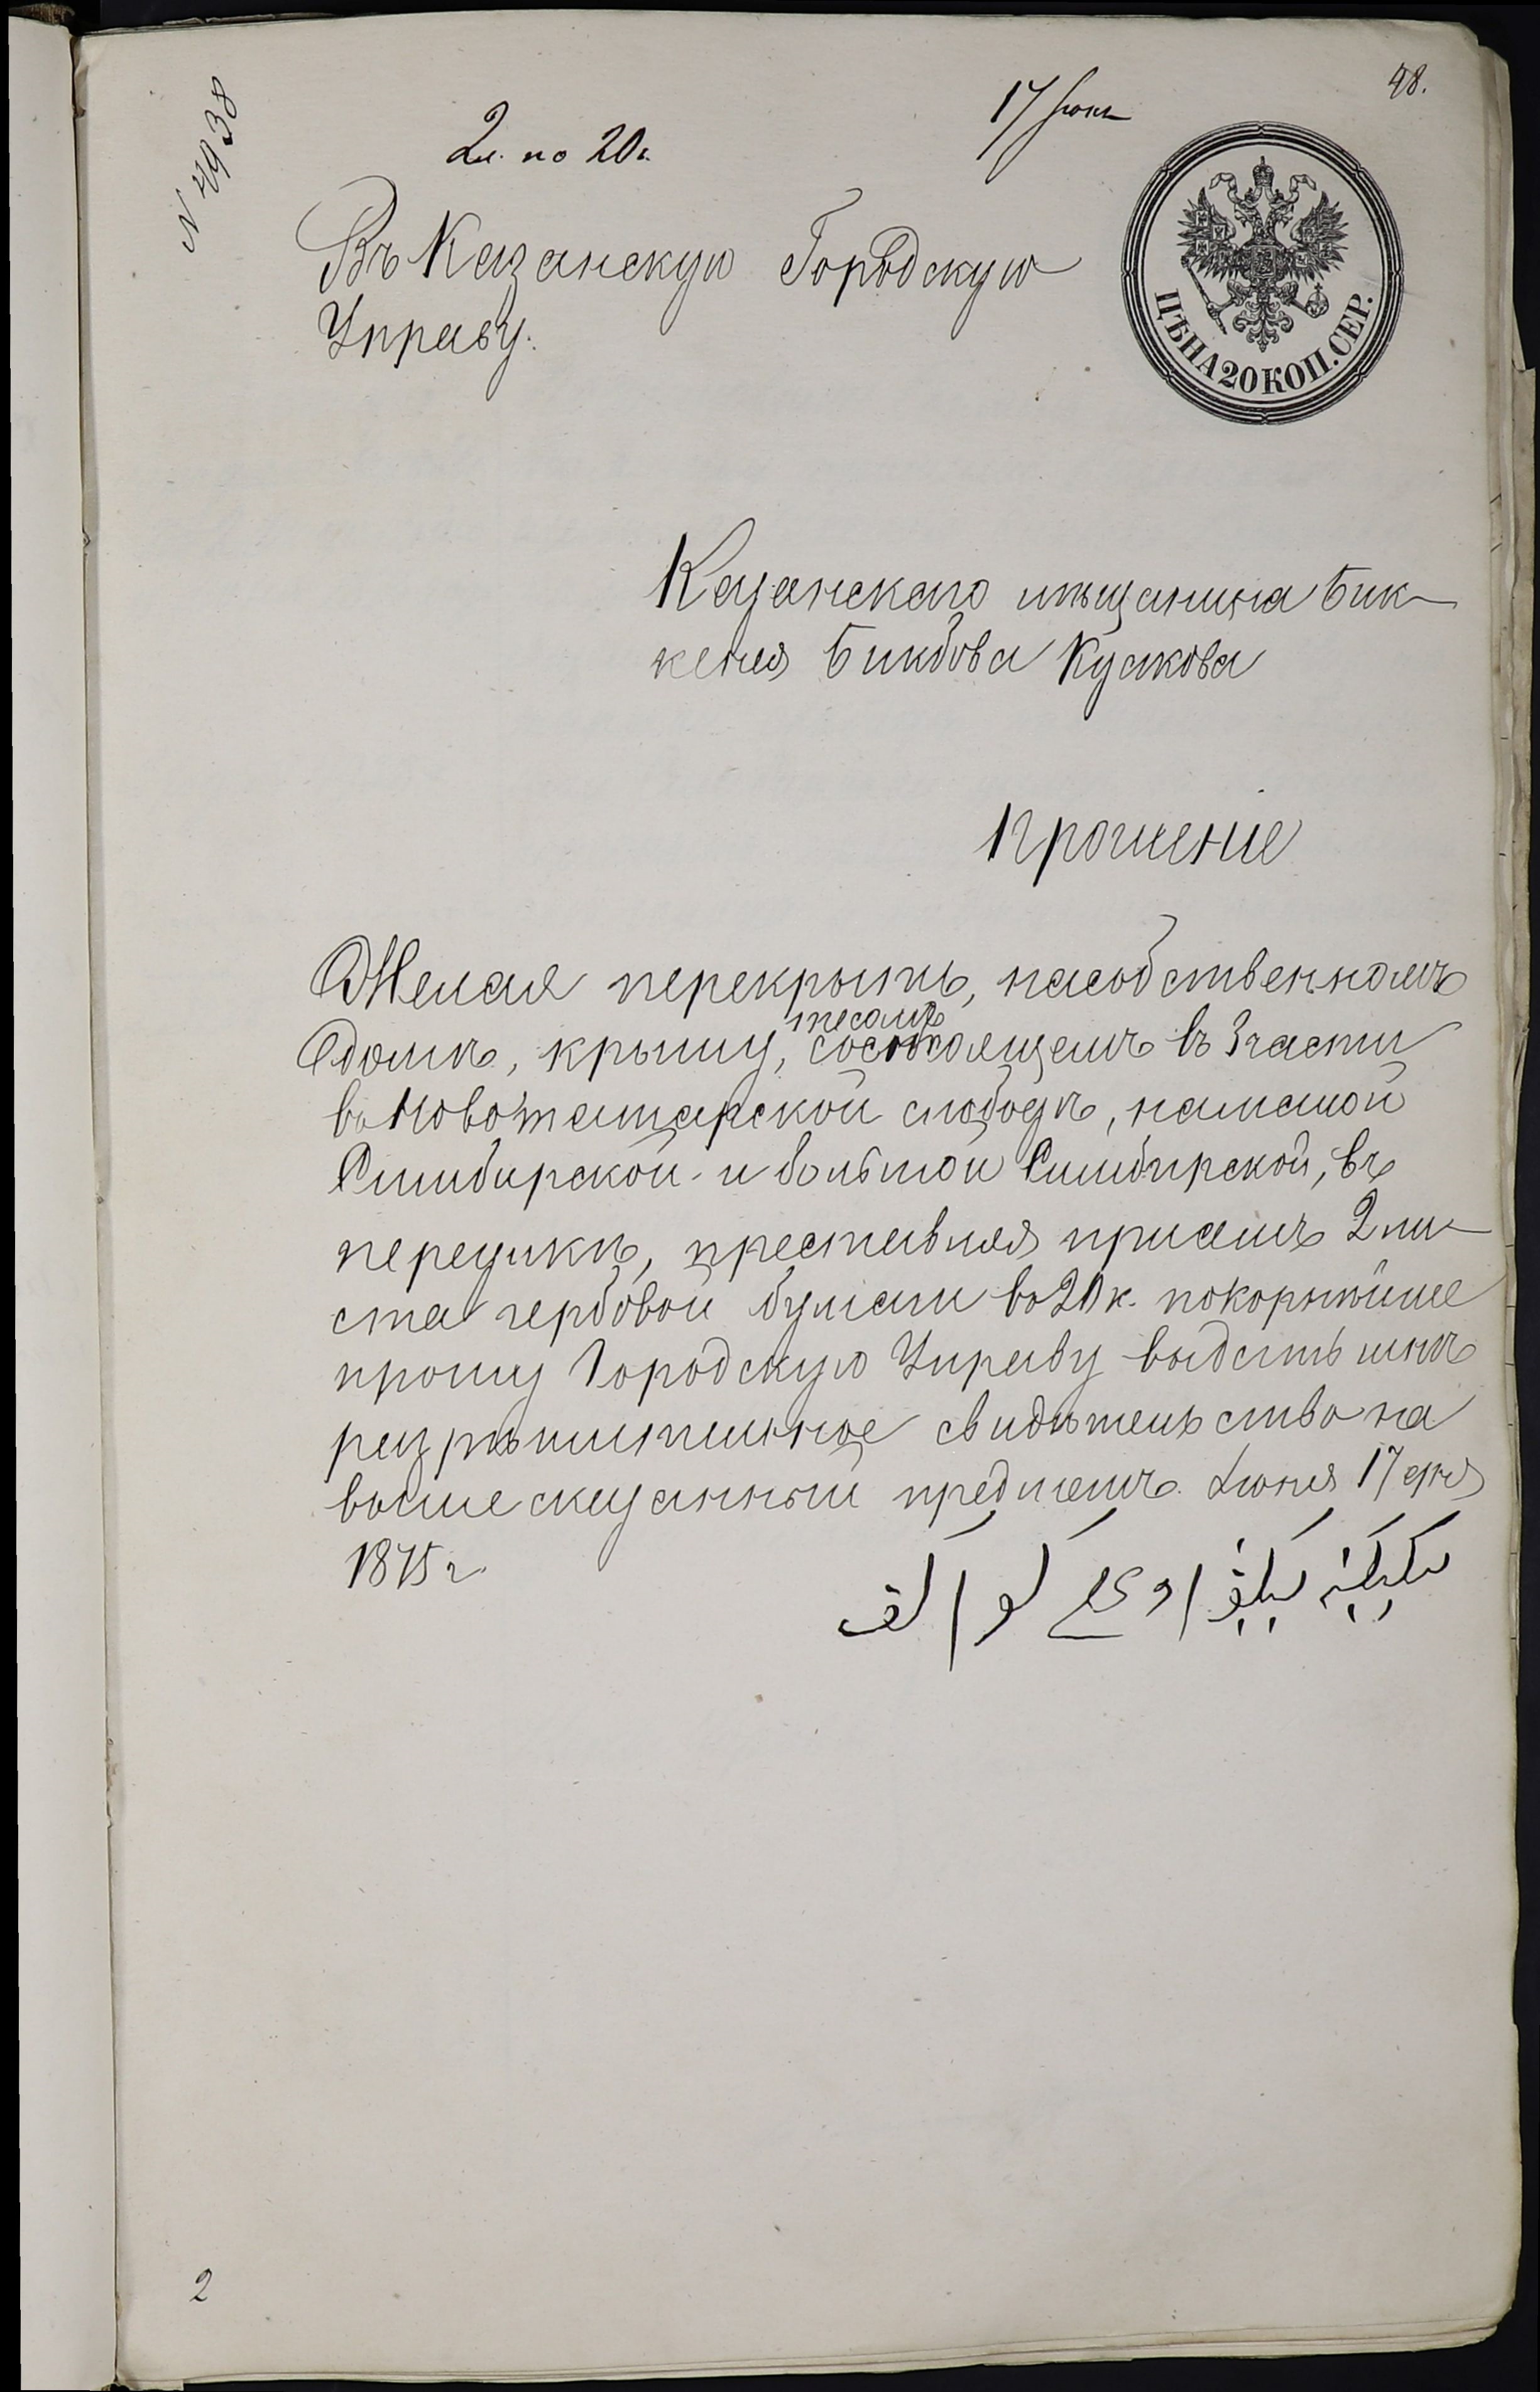 48.
17 Июня
N 4938
2 л. по 20 к.
ЦѢНА 20 КОП. СЕР.
Въ Казанскую Городскую
Управу.
Казанскаго мѣщанина Бик-
кеня Бикбова Куакова
Прошеніе
Желая перекрыть, насобственномъ
домѣ, крышу, тесомъ состоящемъ въ 3 части
въ Новотатарской слободѣ, намалой
Симбирской и большой Симбирской, въ
переулкѣ, преставляя присемъ 2 ли-
ста гербовой бумаги во 20 к. покорнѣйше
прошу Городскую Управу выдать мнѣ
разрѣшительное свидѣтельство на
выше сказанный предметъ. Июня 17 дня
1875 г.